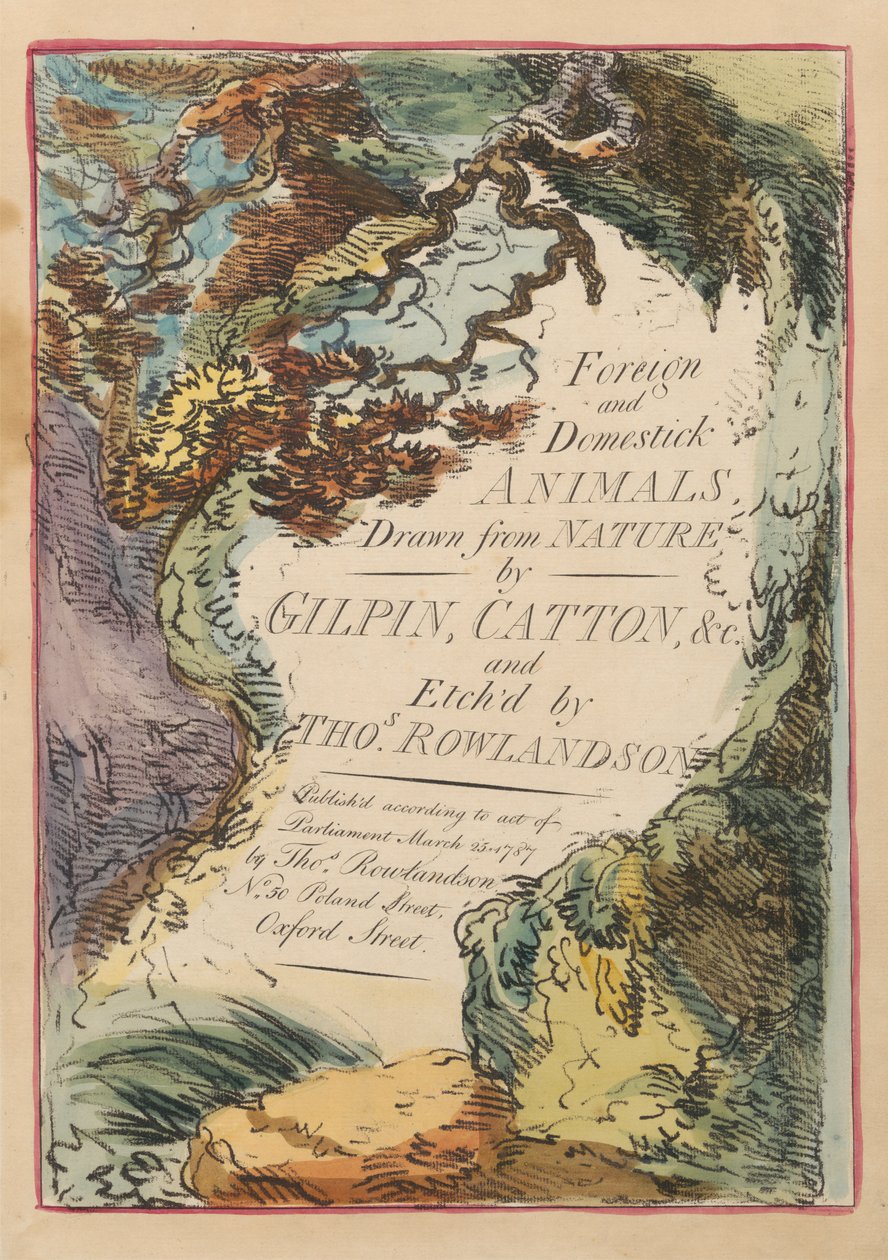 Foreign
and
Domestick
ANIMALS,
Drawn from NATURE
by
GILPIN, CATTON, &c.
and
Etch'd by
THOS. ROWLANDSON
Publish'd according to act of
Parliament March 25. 1787
by Thos. Rowlandson
No. 50 Poland Street,
Oxford Street.